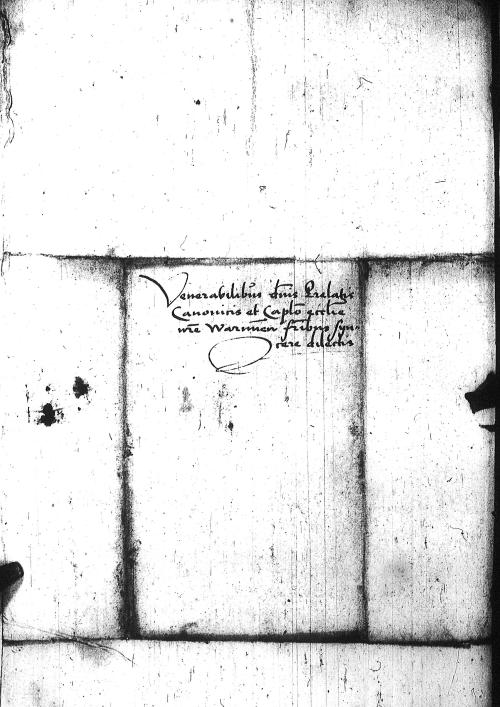 Venerabilibus dnis Prelatis
Canonicis et Caplo ecclie
nre Warmien fribus syn-
cere dilectis